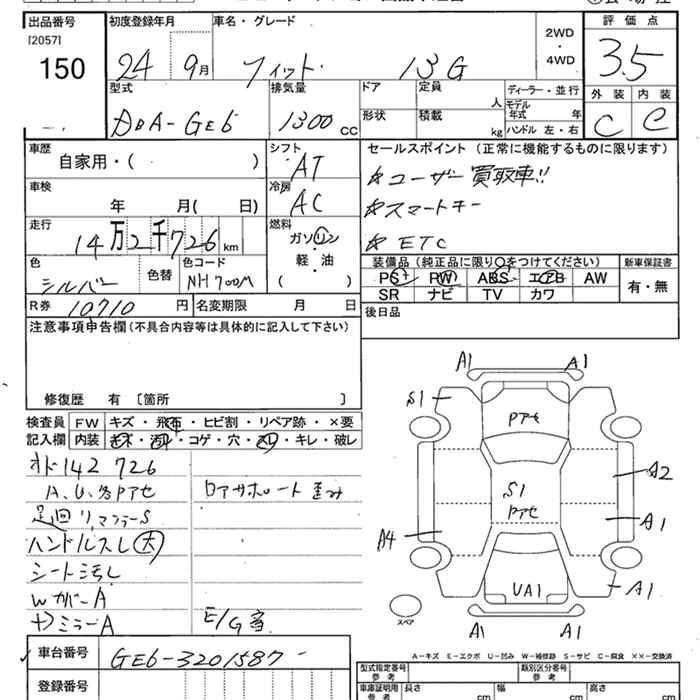 出品番号 初度登録年月 車名・グレード 2WD・4WD 評価点
[2057]
150 24 9月 フィット 13G 3.5
型式 排気量 ドア 定員 人 ディーラー・並行 外装 内装
DBA-GE6 1300 CC 形状 積載 kg モデル年式 年 ハンドル 左・右 C C
車歴 シフト セールスポイント (正常に機能するものに限ります)
自家用・( ) AT ☆ユーザー買取車!!
車検 冷房 ☆スマートキー
年 月( 日) AC ☆ETC
走行 燃料
14万2千726km ガソリン・軽・油 ( )
色 色替 色コード 装備品 (純正品に限り○をつけてください) 新車保証書
シルバー NH700M PS PW ABS エアB AW 有・無
SR ナビ TV カワ
R券 10710円 名変期限 月 日 後日品
注意事項申告欄 (不具合内容等は具体的に記入して下さい)
修復歴 有 [箇所 ]
検査員 FW キズ・飛石・ヒビ割・リペア跡・×要
記入欄 内装 キズ・汚れ・コゲ・穴・スレ・キレ・破レ
オド142726
A、U、各Pアセ ロアサポート歪み
足廻リマフラーS
ハンドルスレ(大)
シート汚レ
WカバーA
ドミラーA E/G音
A1 A1
S1
Pアセ
S1
Pアセ
A2
A1
A4
A1
UA1
スペア
A1 A1
A-キズ E-エクボ U-凹み W-補修跡 S-サビ C-腐食 ××-交換済
車台番号 GE6-3201587
登録番号
型式指定番号 参考 類別区分番号 参考
車庫証明用 参考 長さ cm 幅 cm 高さ cm